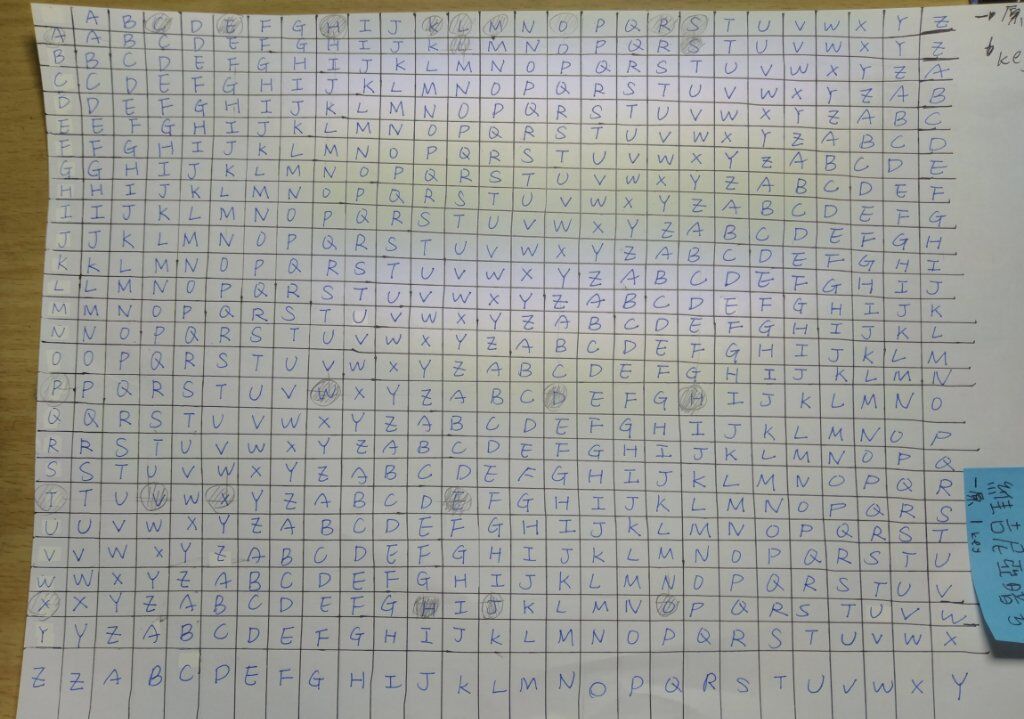 A B C D E F G H I J K L M N O P Q R S T U V W X Y Z
A A B C D E F G H I J K L M N O P Q R S T U V W X Y Z
B B C D E F G H I J K L M N O P Q R S T U V W X Y Z A
C C D E F G H I J K L M N O P Q R S T U V W X Y Z A B
D D E F G H I J K L M N O P Q R S T U V W X Y Z A B C
E E F G H I J K L M N O P Q R S T U V W X Y Z A B C D
F F G H I J K L M N O P Q R S T U V W X Y Z A B C D E
G G H I J K L M N O P Q R S T U V W X Y Z A B C D E F
H H I J K L M N O P Q R S T U V W X Y Z A B C D E F G
I I J K L M N O P Q R S T U V W X Y Z A B C D E F G H
J J K L M N O P Q R S T U V W X Y Z A B C D E F G H I
K K L M N O P Q R S T U V W X Y Z A B C D E F G H I J
L L M N O P Q R S T U V W X Y Z A B C D E F G H I J K
M M N O P Q R S T U V W X Y Z A B C D E F G H I J K L
N N O P Q R S T U V W X Y Z A B C D E F G H I J K L M
O O P Q R S T U V W X Y Z A B C D E F G H I J K L M N
P P Q R S T U V W X Y Z A B C D E F G H I J K L M N O
Q Q R S T U V W X Y Z A B C D E F G H I J K L M N O P
R R S T U V W X Y Z A B C D E F G H I J K L M N O P Q
S S T U V W X Y Z A B C D E F G H I J K L M N O P Q R
T T U V W X Y Z A B C D E F G H I J K L M N O P Q R S
U U V W X Y Z A B C D E F G H I J K L M N O P Q R S T
V V W X Y Z A B C D E F G H I J K L M N O P Q R S T U
W W X Y Z A B C D E F G H I J K L M N O P Q R S T U V
X X Y Z A B C D E F G H I J K L M N O P Q R S T U V W
Y Y Z A B C D E F G H I J K L M N O P Q R S T U V W X
Z Z A B C D E F G H I J K L M N O P Q R S T U V W X Y
維吉尼亞
key